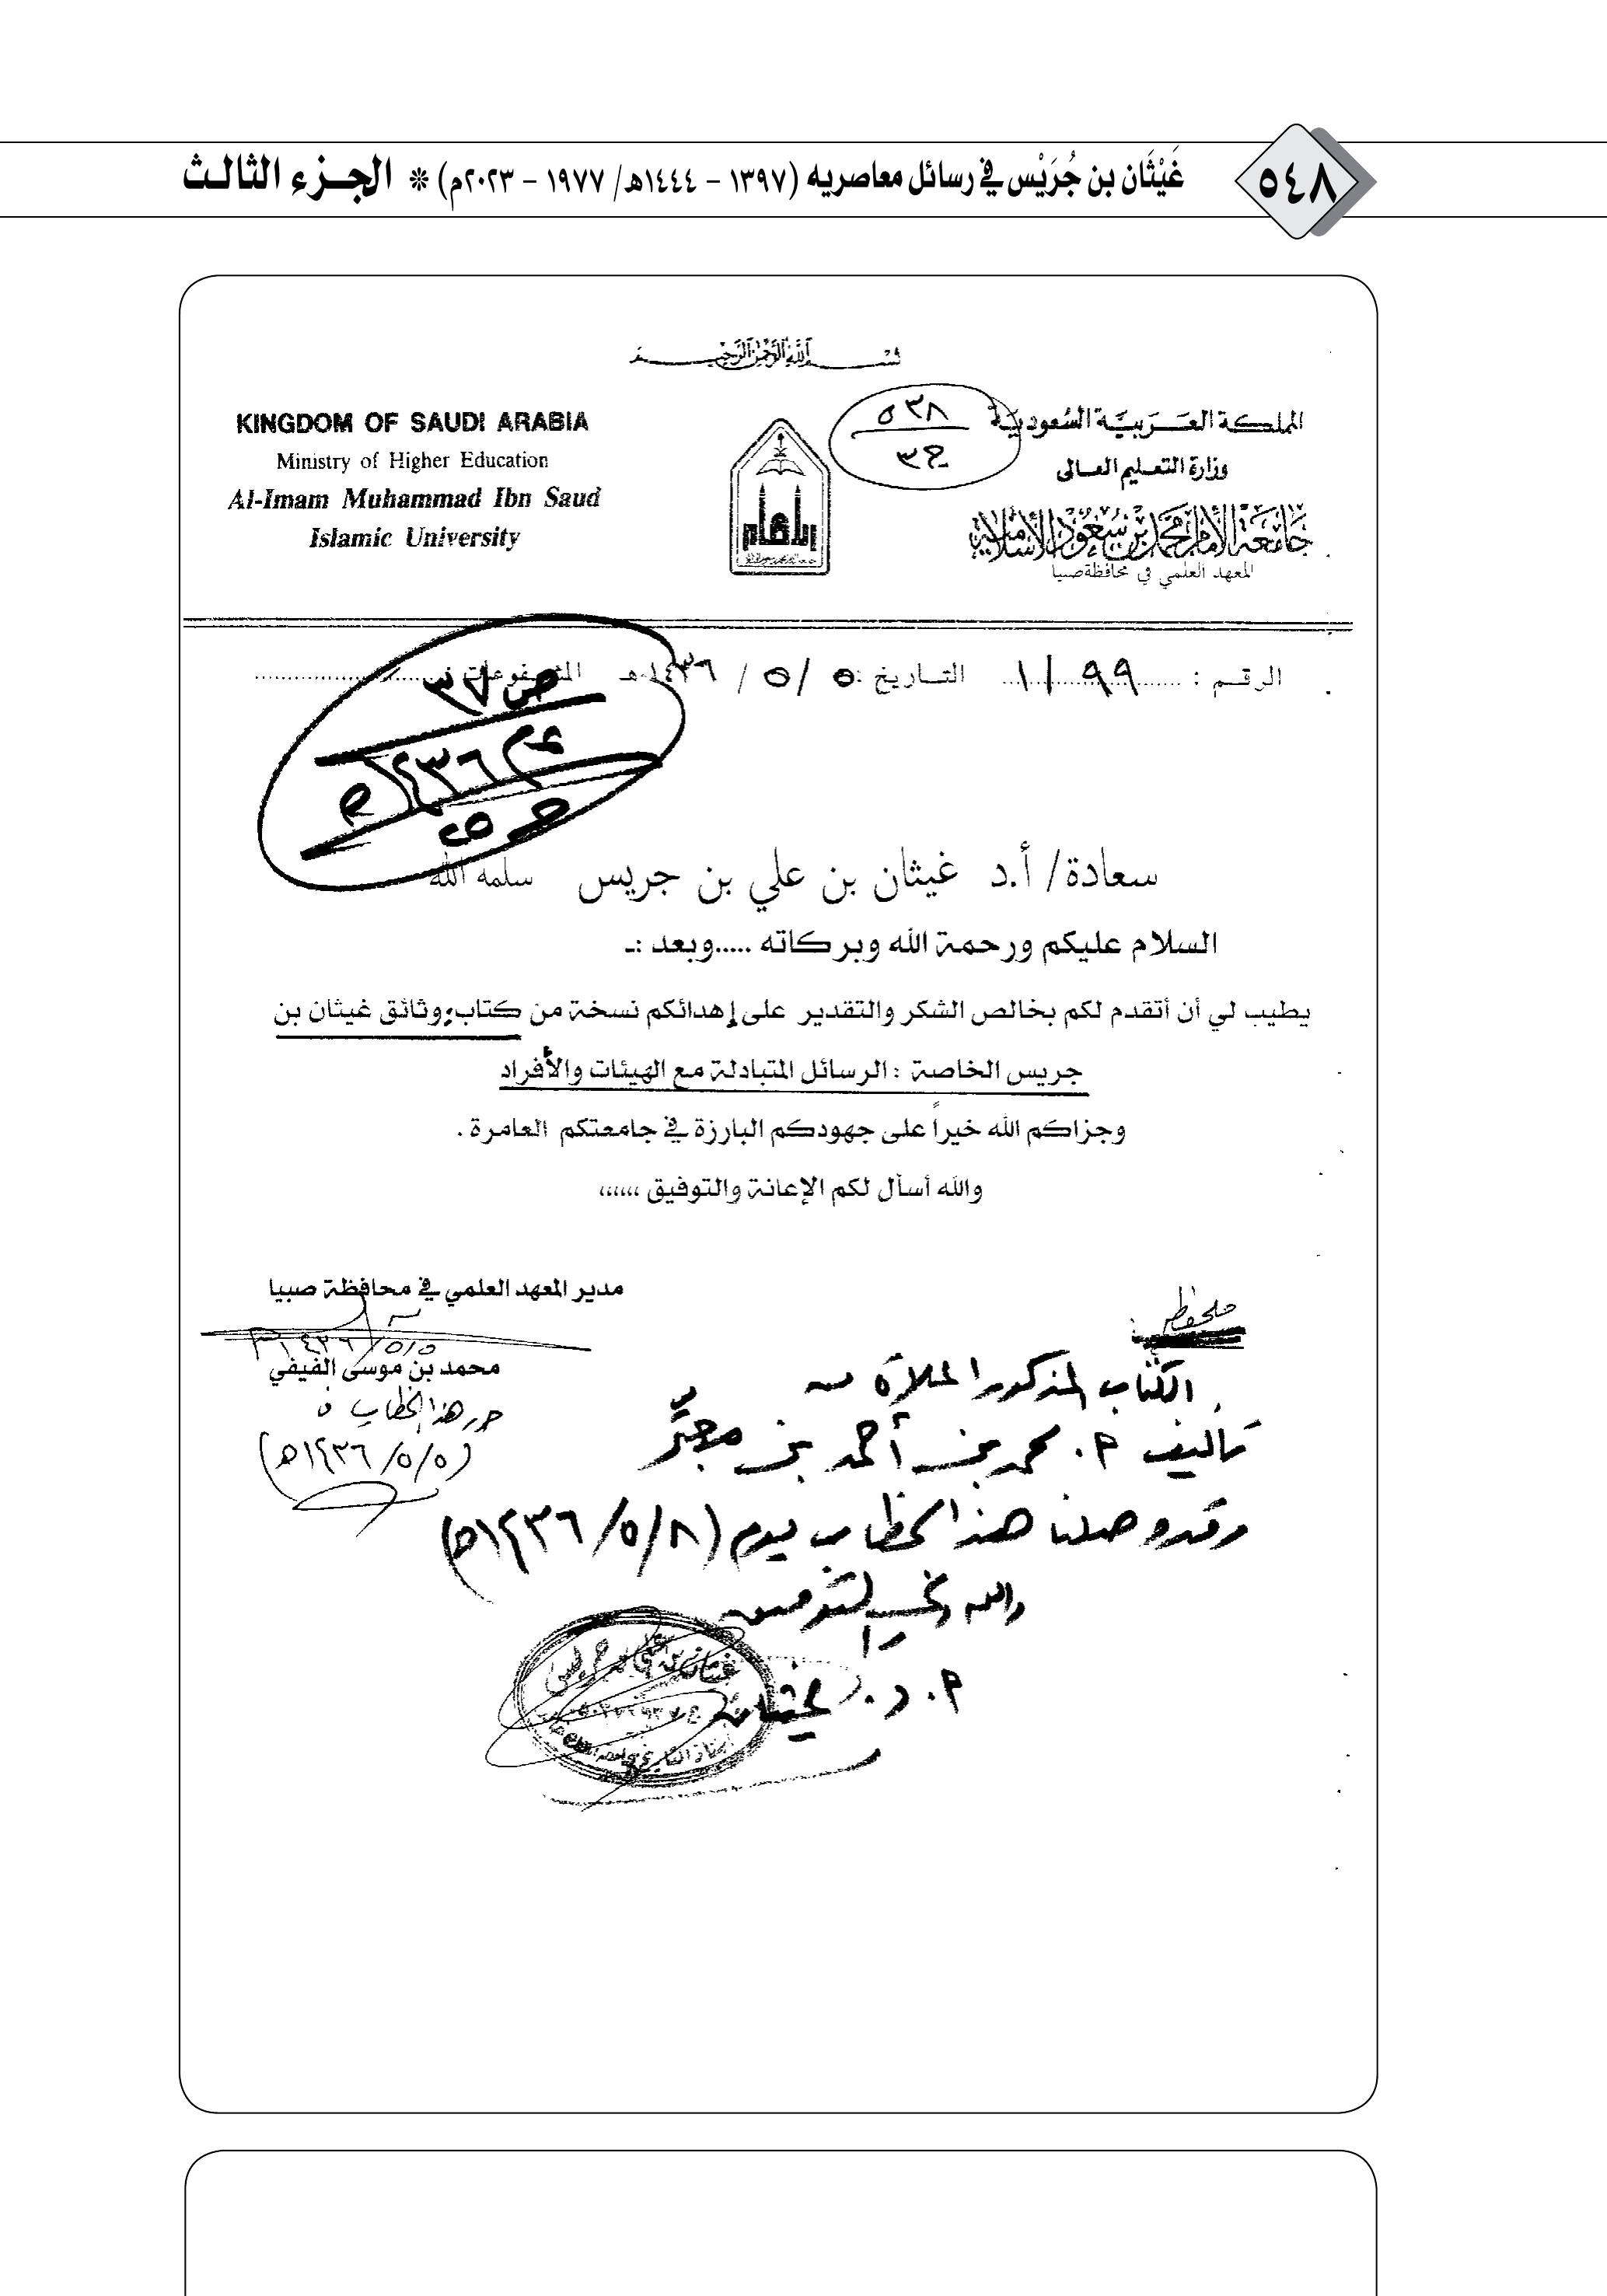 ٥٤٨
غَيْثَان بن جُرَيْس في رسائل معاصريه (١٣٩٧ – ١٤٤٤هـ/ ١٩٧٧ – ٢٠٢٣م) * الجـزء الثالـث
بسم الله الرحمن الرحيم
المملكة العربية السعودية
وزارة التعليم العالى
جامعة الإمام محمد بن سعود الإسلامية
المعهد العلمي في محافظة صبيا
٥٣٨
KINGDOM OF SAUDI ARABIA
Ministry of Higher Education
Al-Imam Muhammad Ibn Saud
Islamic University
الرقـم : ١/٩٩ التـاريخ : ٥/ ٥ / ١٤٣٦هـ المشفوعات :
ص ٣٧
١٤٣٦هـ
سعادة/ أ.د غيثان بن علي بن جريس سلمه الله
السلام عليكم ورحمة الله وبركاته .....وبعد :ـ
يطيب لي أن أتقدم لكم بخالص الشكر والتقدير على إهدائكم نسخة من كتاب:وثائق غيثان بن
جريس الخاصة : الرسائل المتبادلة مع الهيئات والأفراد
وجزاكم الله خيراً على جهودكم البارزة في جامعتكم العامرة .
والله أسأل لكم الإعانة والتوفيق ،،،،،،
مدير المعهد العلمي في محافظة صبيا
١٤٣٦/٥/٥هـ
محمد بن موسى الفيفي
حرر هذا الخطاب في
(١٤٣٦/٥/٥هـ)
الكتاب المذكور أعلاه من
تأليف أ. محمد بن أحمد بن معبّر
وقد وصلنا هذا الخطاب يوم (١٤٣٦/٥/٨هـ)
والله ولي التوفيق
أ. د. غيثان
غيثان بن علي بن جريس